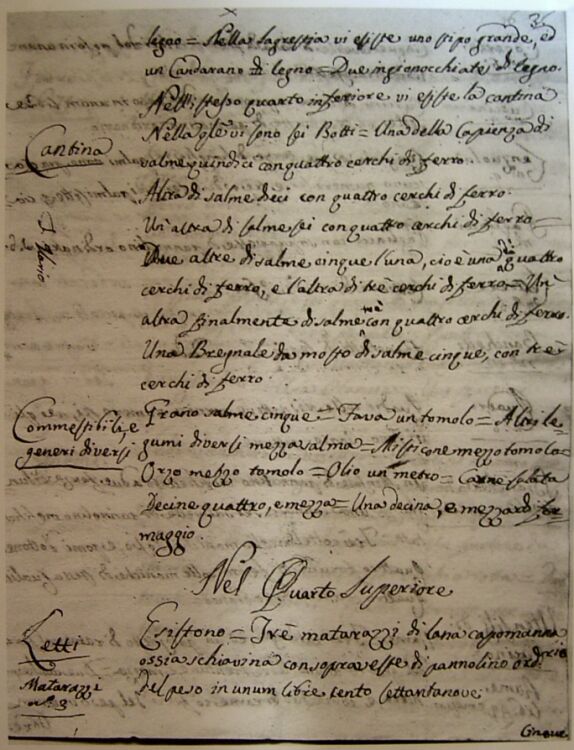 36
legno = Nella Sagrestia vi esiste uno stipo grande, ed
un Candarano di legno = Due inginocchiate di legno.
Nell'istesso quarto inferiore vi esiste la cantina
Cantina
Nella qle vi sono sei Botti = Una della Capienza di
salme quindici con quattro cerchi di ferro.
Altra di salme dieci con quattro cerchi di ferro.
Un'altra di salme sei con quattro cerchi di ferro =
Due altre di salme cinque l'una, cioè una di quattro
cerchi di ferro, e l'altra di tre cerchi di ferro = Un'
altra finalmente di salme tre con quattro cerchi di ferro.
Una Bregnale da mosto di salme cinque, con tre
cerchi di ferro.
Commestibili, e
generi diversi
Grano salme cinque = Fava un tomolo = Altri le
gumi diversi mezza salma = Misticone mezzo tomolo =
Orzo mezzo tomolo = Olio un metro = Carne salata
Decine quattro, e mezza = Una decina, e mezza di for
maggio.
Nel Quarto Superiore
Letti
Matarazzi
n.º 3
Esistono = Tre matarazzi di lana capomanna
ossia schiavina con sopravesse di pannolino ord.rio
Del peso in unum libre cento settantanove
Cinque